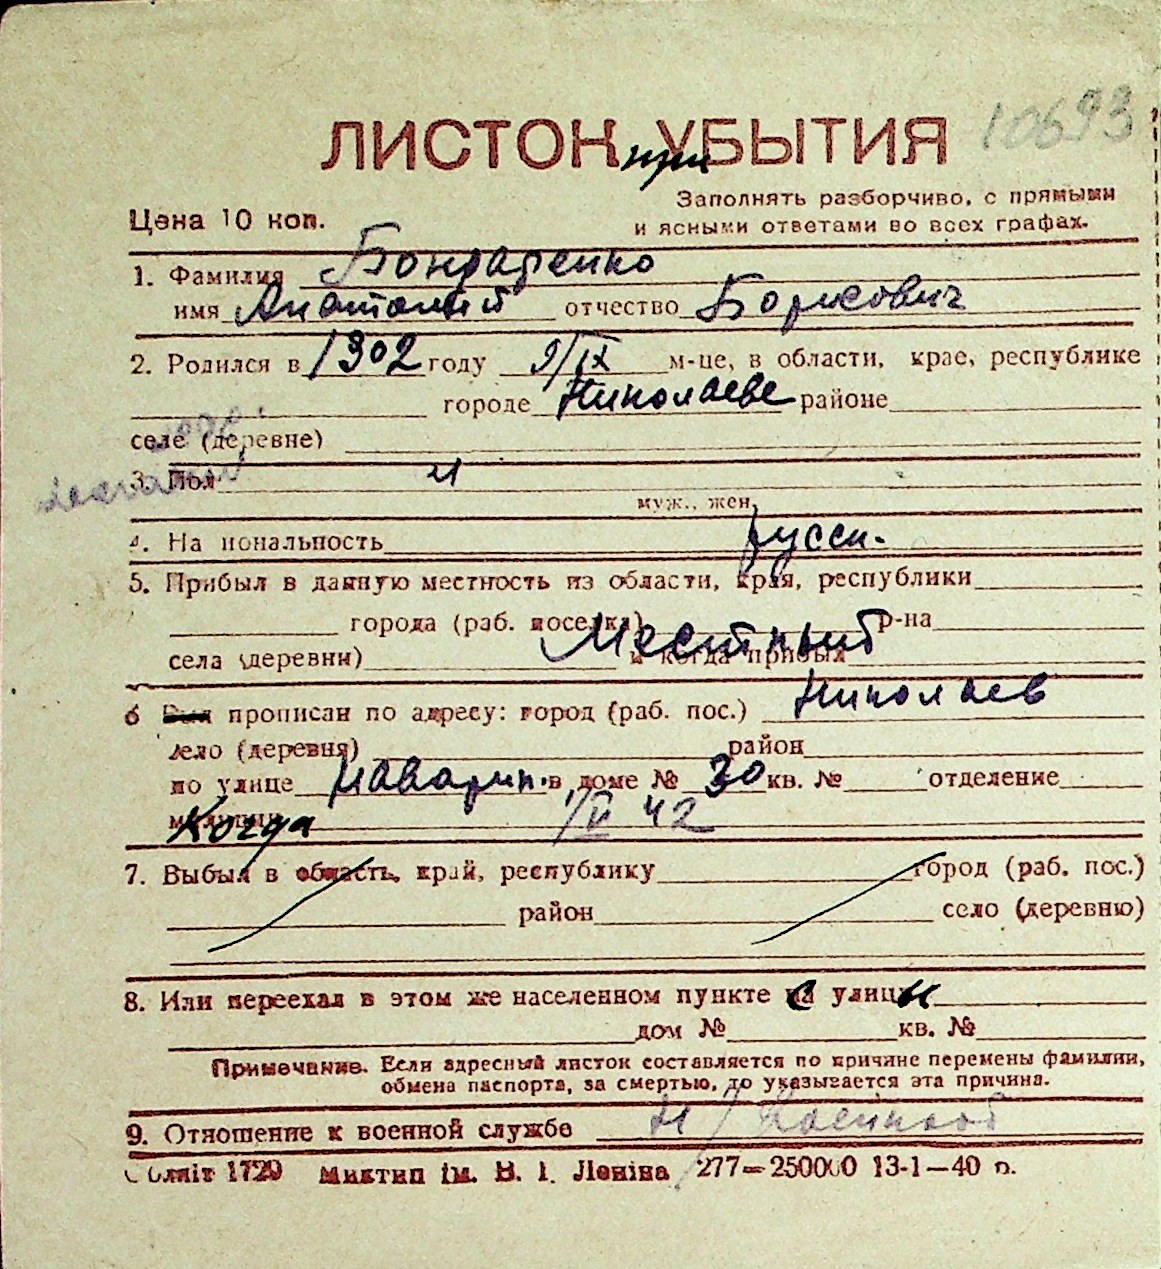 10693
ЛИСТОК УБЫТИЯ
при
Цена 10 коп.
Заполнять разборчиво, с прямыми
и ясными ответами во всех графах.
1. Фамилия Бондаренко
имя Анатолий отчество Борисович
2. Родился в 1902 году 9/IX м-це, в области, крае, республике
городе Николаеве районе
селе (деревне)
3. Пол м
муж., жен.
4. На иональность русск.
5. Прибыл в данную местность из области, края, республики
города (раб. поселка) Местный р-на
села (деревни) и когда прибыл
6 Был прописан по адресу: город (раб. пос.) Николаев
село (деревня) район
по улице Наварин. в доме № 30 кв. № отделение
милиции Когда 1/V 42
7. Выбыл в область, край, республику город (раб. пос.)
район село (деревню)
8. Или переехал в этом же населенном пункте с улицы
дом № кв. №
Примечание. Если адресный листок составляется по причине перемены фамилии,
обмена паспорта, за смертью, то указывается эта причина.
9. Отношение к военной службе н/военнооб
Облліт 1720 Миктип ім. В. І. Леніна 277—250000 13-1—40 р.